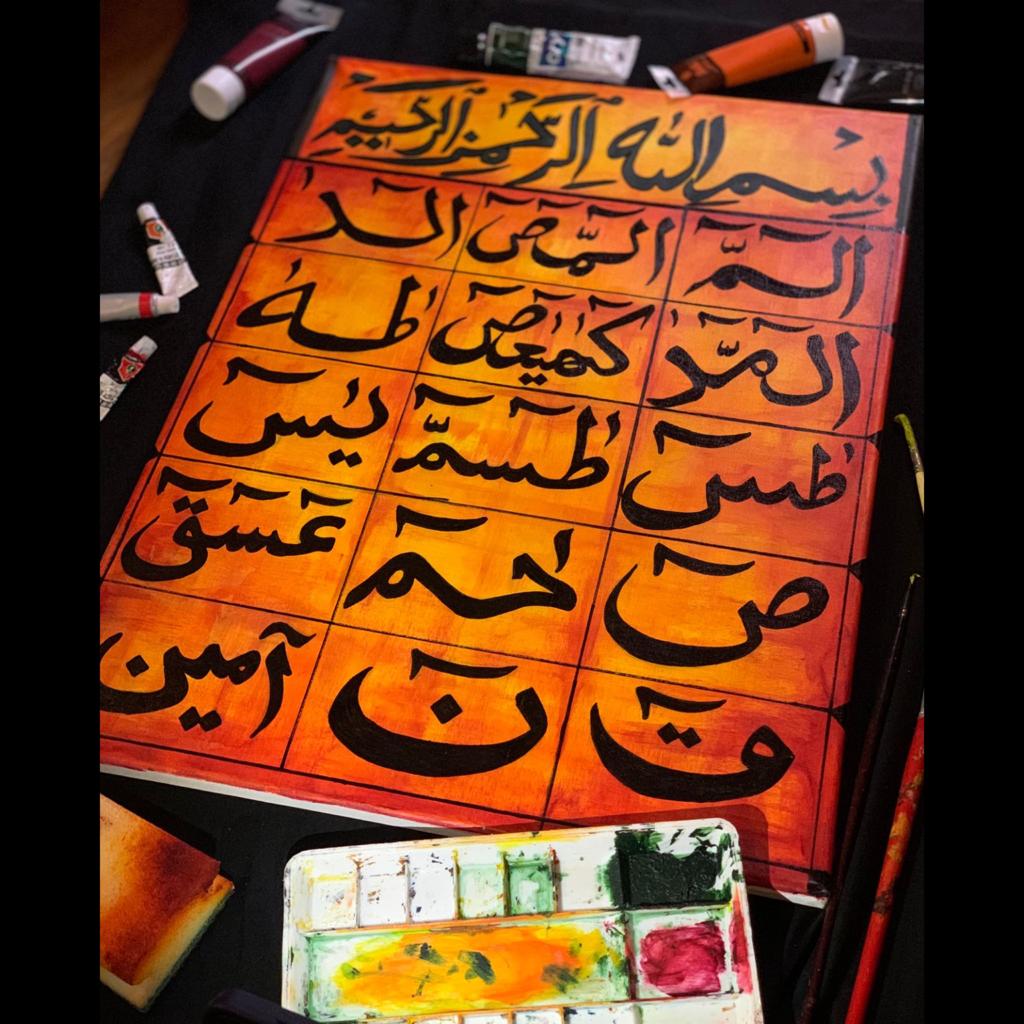 بِسمِ اللّٰهِ الرَّحمٰنِ الرَّحِيمِ
الٓمّٓ الٓمّٓصٓ الٓرٰ
الٓمّٓرٰ كٓهٰيٰعٓصٓ طٰهٰ
طٰسٓ طٰسٓمّٓ يٰسٓ
صٓ حٰمٓ عٓسٓقٓ
قٓ نٓ آمين